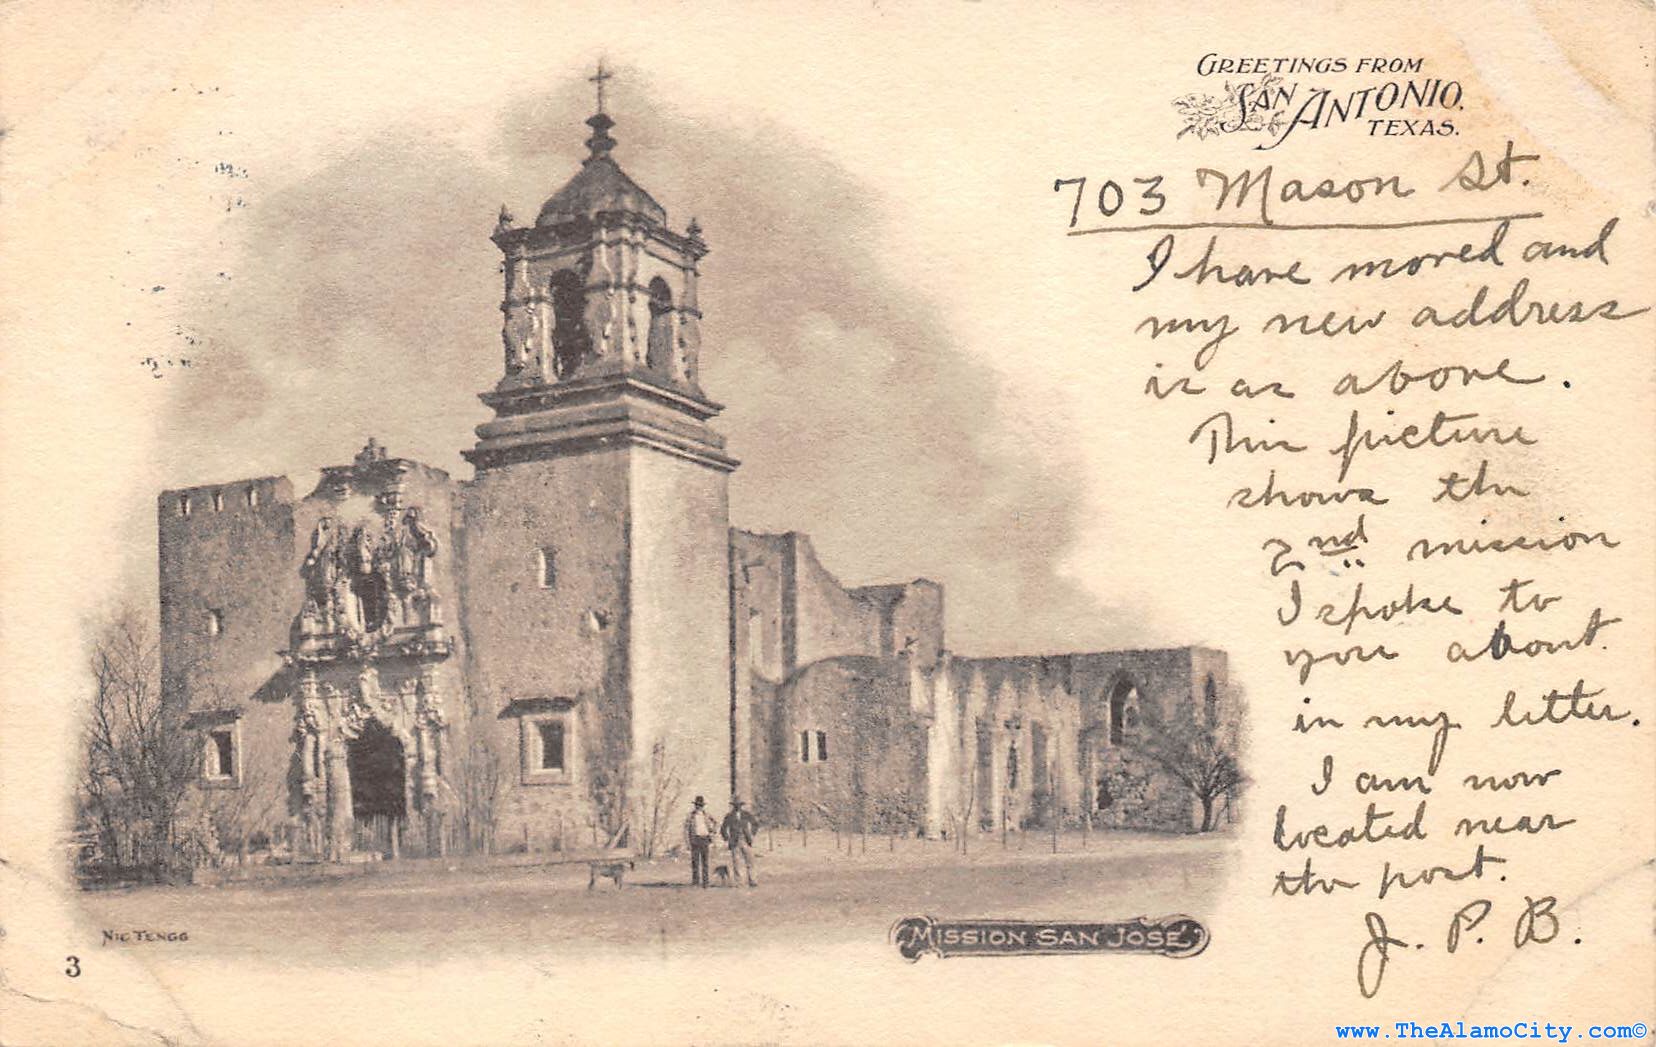 GREETINGS FROM
SAN ANTONIO,
TEXAS.
703 Mason St.
I have moved and
my new address
is as above.
This picture
shows the
2nd mission
I spoke to
you about
in my letter.
I am now
located near
the post.
J. P. B.
MISSION SAN JOSE
NIC TENGG
3
www.TheAlamoCity.com©